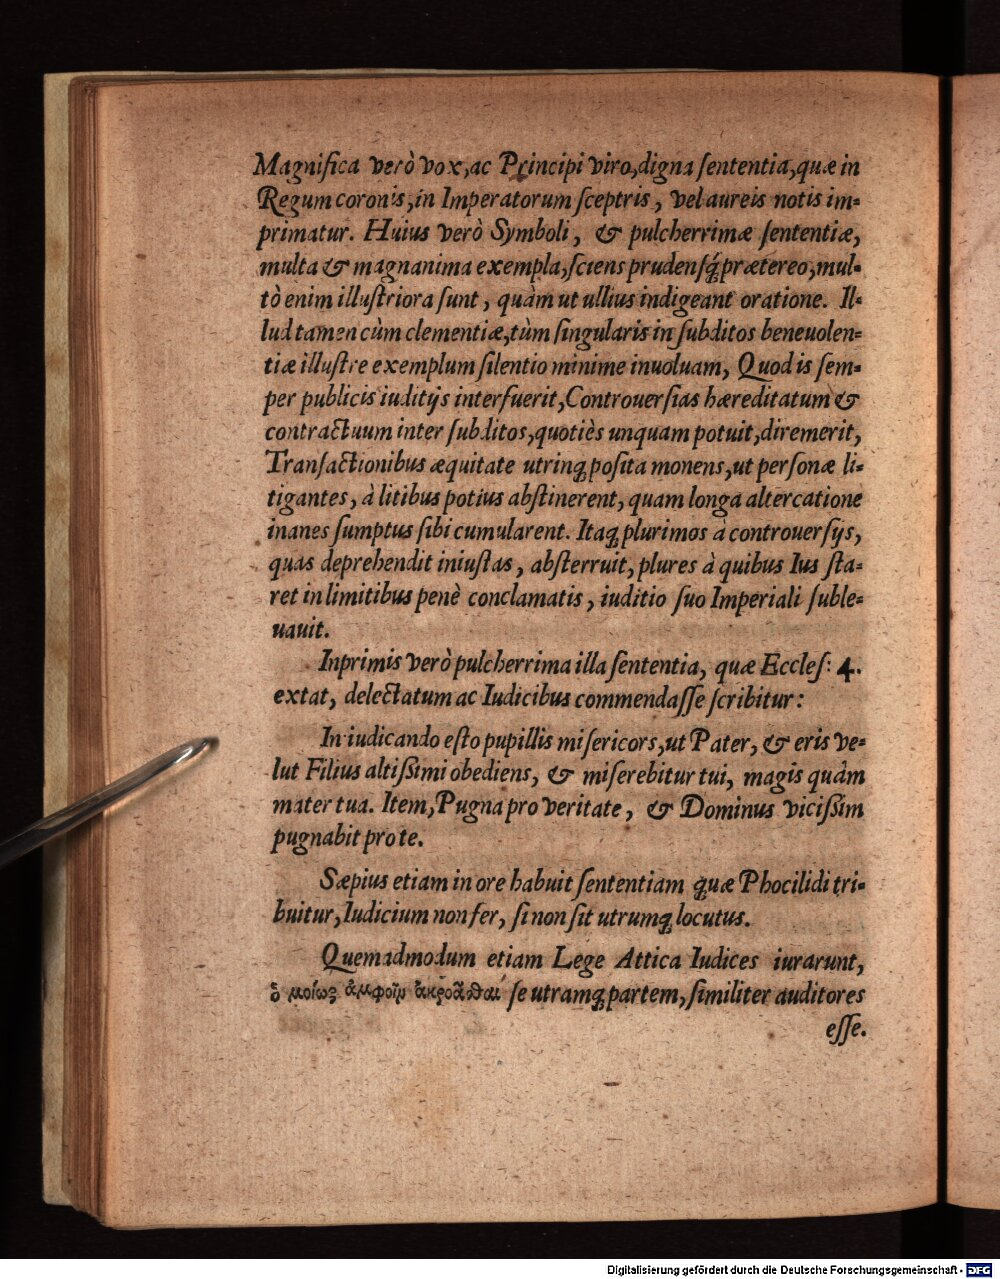 Magnifica verò vox, ac Principi viro, digna sententia, quæ in
Regum coronis, in Imperatorum sceptris, vel aureis notis im-
primatur. Huius verò Symboli, & pulcherrimæ sententiæ,
multa & magnanima exempla, sciens prudensq́; prætereo, mul-
tò enim illustriora sunt, quàm ut ullius indigeant oratione. Il-
lud tamen cùm clementiæ, tùm singularis in subditos beneuolen-
tiæ illustre exemplum silentio minime inuoluam, Quod is sem-
per publicis iuditijs interfuerit, Controuersias hæreditatum &
contractuum inter subditos, quotiès unquam potuit, diremerit,
Transactionibus æquitate utrinq; posita monens, ut personæ li-
tigantes, à litibus potius abstinerent, quam longa altercatione
inanes sumptus sibi cumularent. Itaq; plurimos à controuersijs,
quas deprehendit iniustas, absterruit, plures à quibus Ius sta-
ret in limitibus penè conclamatis, iuditio suo Imperiali suble-
uauit.
Inprimis verò pulcherrima illa sententia, quæ Eccles: 4.
extat, delectatum ac Iudicibus commendasse scribitur:
In iudicando esto pupillis misericors, ut Pater, & eris ve-
lut Filius altissimi obediens, & miserebitur tui, magis quàm
mater tua. Item, Pugna pro veritate, & Dominus vicissim
pugnabit pro te.
Sæpius etiam in ore habuit sententiam quæ Phocilidi tri-
buitur, Iudicium non fer, si non sit utrumq; locutus.
Quemadmodum etiam Lege Attica Iudices iurarunt,
ὁ μοίως ἀμφοῖν ἀκροᾶσθαι se utramq; partem, similiter auditores
esse.
Digitalisierung gefördert durch die Deutsche Forschungsgemeinschaft - DFG